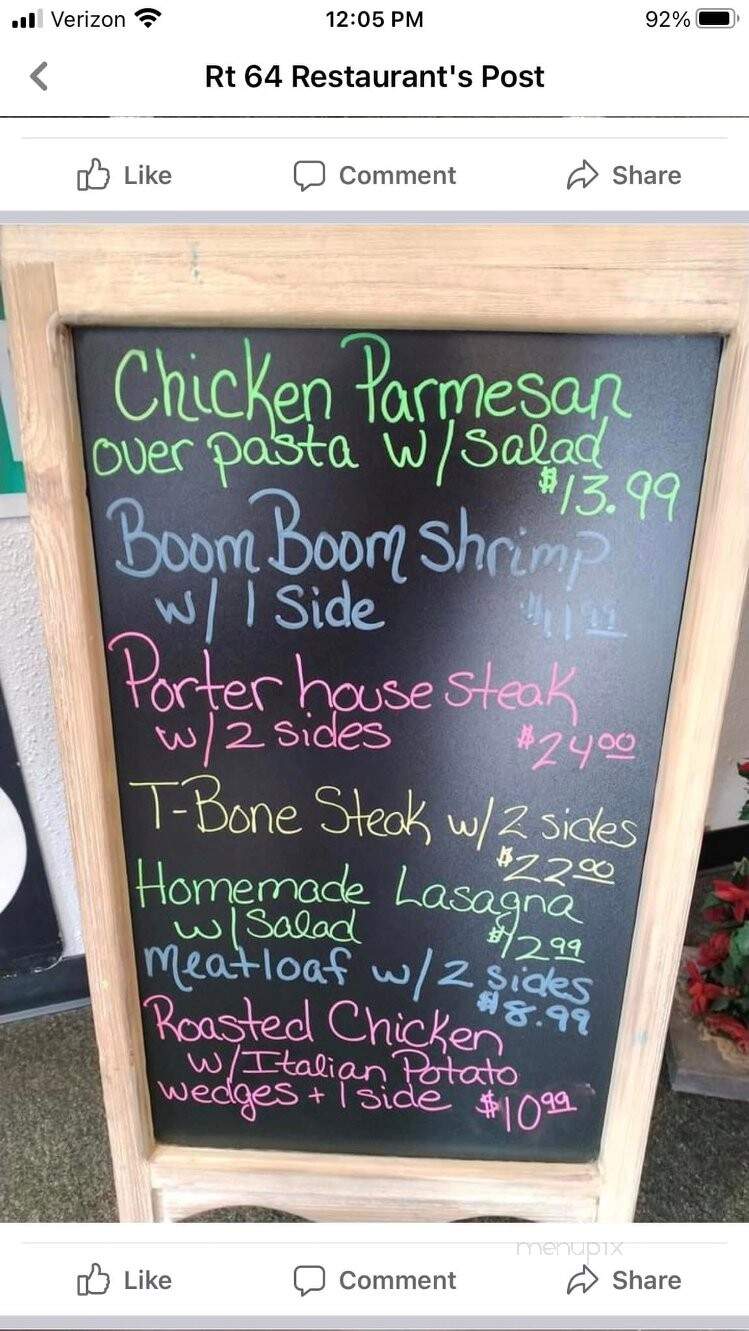 Verizon 12:05 PM 92%
Rt 64 Restaurant's Post
Like Comment Share
Chicken Parmesan
over pasta w/Salad
$13.99
Boom Boom Shrimp
w/ 1 Side $11.99
Porter house steak
w/2 sides $24.00
T-Bone Steak w/2 sides
$22.00
Homemade Lasagna
w/Salad $12.99
Meatloaf w/2 sides
$8.99
Roasted Chicken
w/Italian Potato
wedges + 1 side $10.99
menupix
Like Comment Share